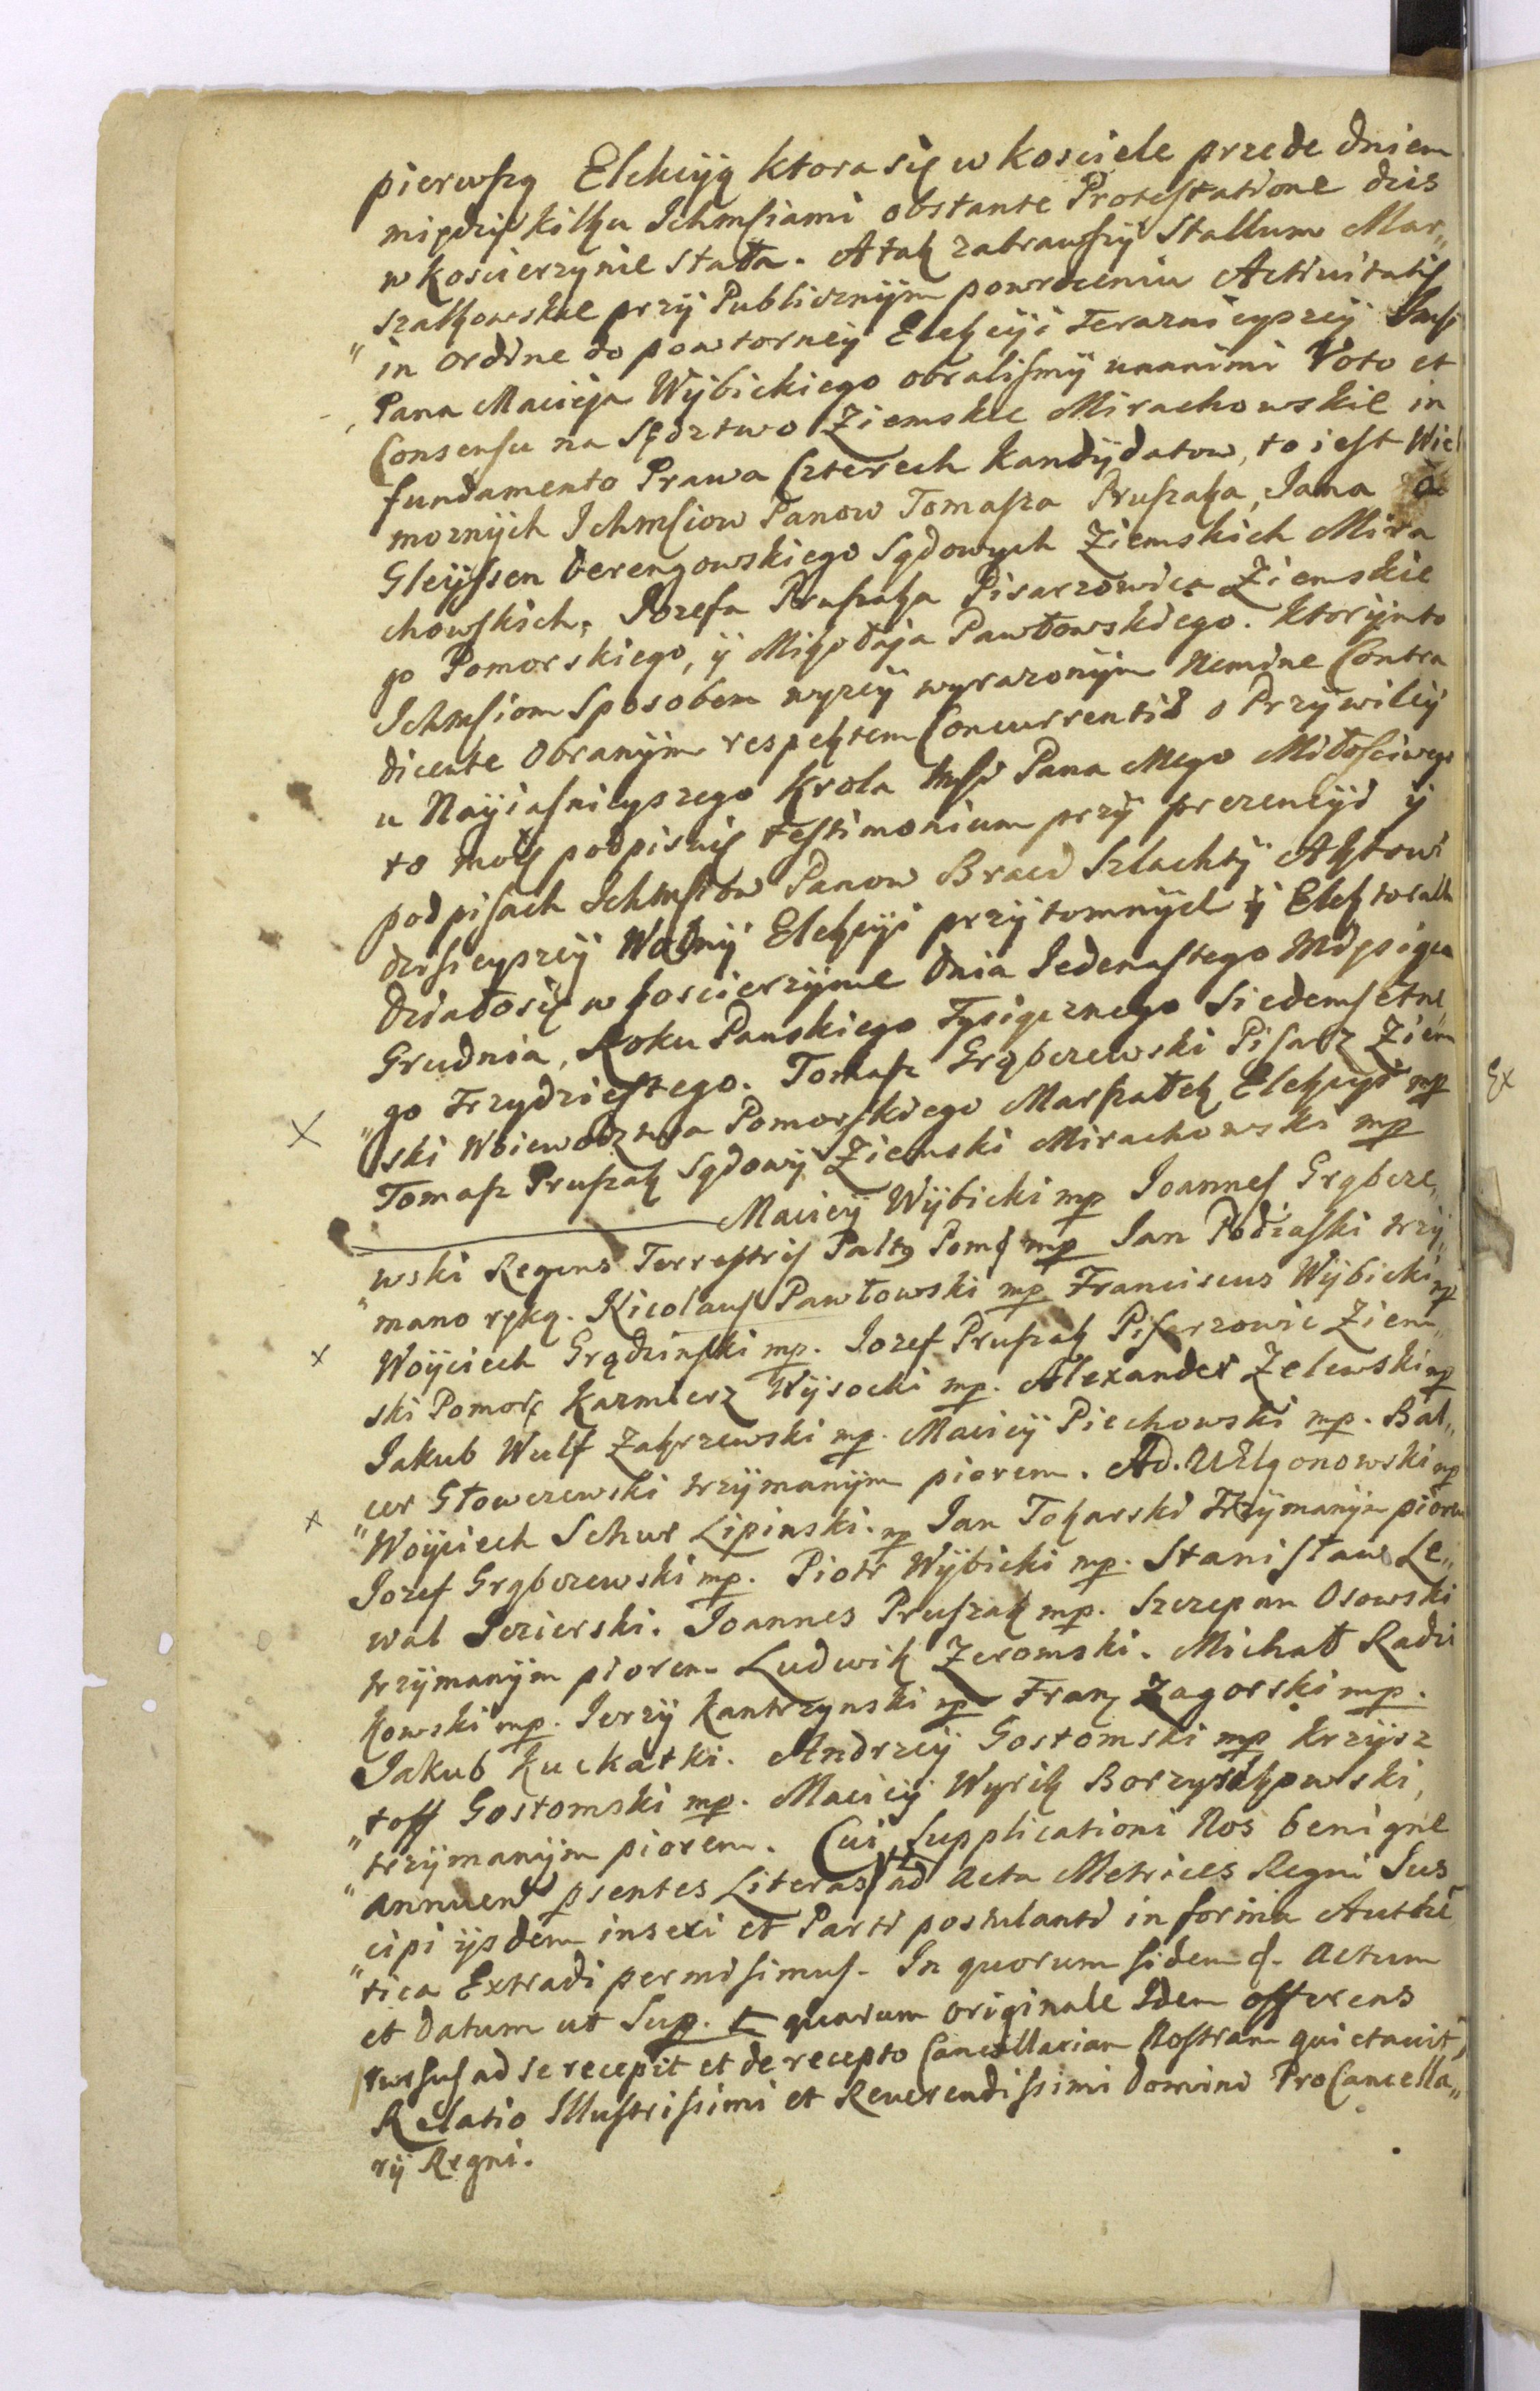 pierwszą Elekcyą ktora się w kosciele przede dniem
między kilku Ichmsciami obstante Protestatione dzis
w koscierzynie stała. A tak zabrawszy Stallum Mar„
szałkowskie przy Publicznym powroceniu Activitatis
„in ordine do powtorney Elekcyi teraznieyszey Imsci
Pana Macieja Wybickiego obralismy unanimi Voto et
Consensu na Sędztwo Ziemskie Mirachowskie in
fundamento Prawa Czterech Kandydatow, to iest Wiel
moznych Ichmsciow Panow Tomasza Pruszaka, Jana
Gleyssen Derengowskiego Sądowych Ziemskich Mira
chowskich, Jozefa Pruszaka Pisarzowica Ziemskie
go Pomorskiego, y Mikołaja Pawłowskiego. Ktorymto
Ichmsciom Sposobem wyzey wyrazonym Nemine Contra
dicente Obranym respektem Concurrentis o Przywiley
u Nayiasnieyszego Krola Imsci Pana Mego Miłosciwego
to moie podpisuię testimonium przy prezencyi y
podpisach Ichmsciow Panow Braci Szlachty Aktowi
dzisieyszey Walny Elekcyi przytomnych y Elektorach
Działosię w koscierzynie dnia Jedenastego Miesiąca
Grudnia, Roku Panskiego Tysiącznego Siedemsetne
„go Trzydziestego. Tomasz Grąbczewski Pisarz Ziem
ski Woiewodztwa Pomorskiego Marszałek Elekcyi mp
Tomasz Pruszak Sądowy Ziemski Mirachowski mp
Maciey Wybicki mp Joannes Grąbcze„
„wski Regens Terrestris Paltg Poms mp Jan Podiaski trzy„
mano ręką. Nicolaus Pawłowski mp Franciscus Wybicki mp
Woyciech Grądzinski mp. Jozef Pruszak Pisarzowic Ziem„
ski Pomors Kazmierz Wysocki mp. Alexander Zelewski mp
Jakub Wulf Zakrzewski mp. Maciey Piechowski mp. Bal„
cer Słowczewski trzymanym piorem. Ad. Uzlgonowski mp
„Woyciech Schur Lipinski. mp Jan Tokarski Trzymanym piorem
Jozef Grąbczewski mp. Piotr Wybicki mp. Stanisław Le„
wal Jezierski. Joannes Pruszak mp. Szczepan Osowski
trzymanym piorem Ludwik Zeromski. Michał Radzi
kowski mp. Jerzy Kantrzynski mp Franz Zagorski mp.
Jakub Kuckatki. Andrzey Gostomski mp Krzysz
„toff Gostomski mp. Maciey Wyrik Borzyszkowski,
„trzymanym piorem. Cui Supplicationi Nos benigne
annuend psentes Literas ad Acta Metrices Regni Sus
„cipi ijsdem inseri et Parti postulanti in forma Authē
„tica Extradi permisimus. In quorum fidem &. Actum
et Datum ut Sup. quarum originale Idem offerens
rursus ad se recepit et de recepto Cancellariam Nostram quietavit,
Relatio Illustrissimi et Reverendissimi Domini ProCancella„
rij Regni.
Ex